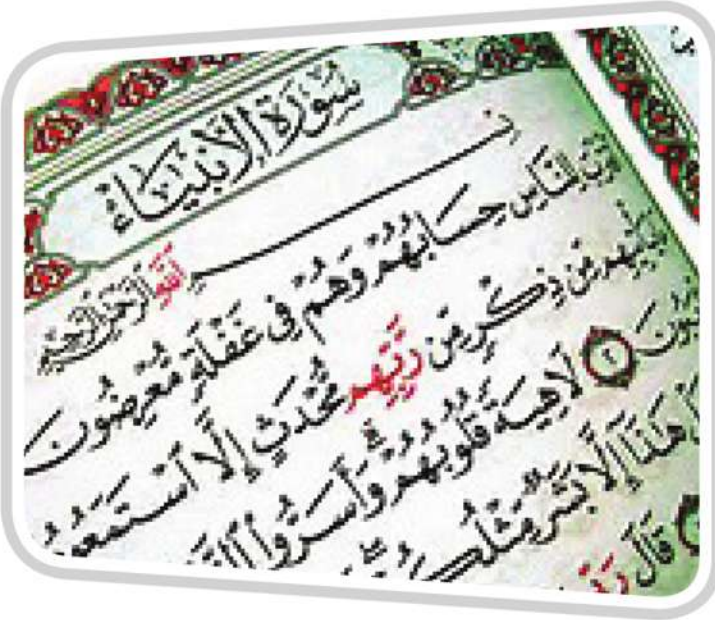 سُورَةُ الأَنبِيَاء
بِسْمِ اللَّهِ الرَّحْمَٰنِ الرَّحِيمِ
لِلنَّاسِ حِسَابُهُمْ وَهُمْ فِي غَفْلَةٍ مُّعْرِضُونَ
يَأْتِيهِم مِّن ذِكْرٍ مِّن رَّبِّهِم مُّحْدَثٍ إِلَّا ٱسْتَمَعُو
٢ لَاهِيَةً قُلُوبُهُمْ وَأَسَرُّوا۟
هَٰذَآ إِلَّا بَشَرٌ مِّثْلُكُ
قَالَ